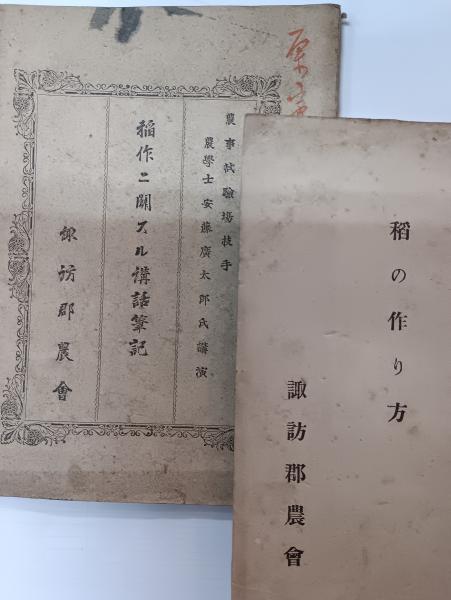 農事試驗場技手
農學士安藤廣太郎氏講演
稲作ニ關スル講話筆記
諏訪郡農會
稻の作り方
諏訪郡農會